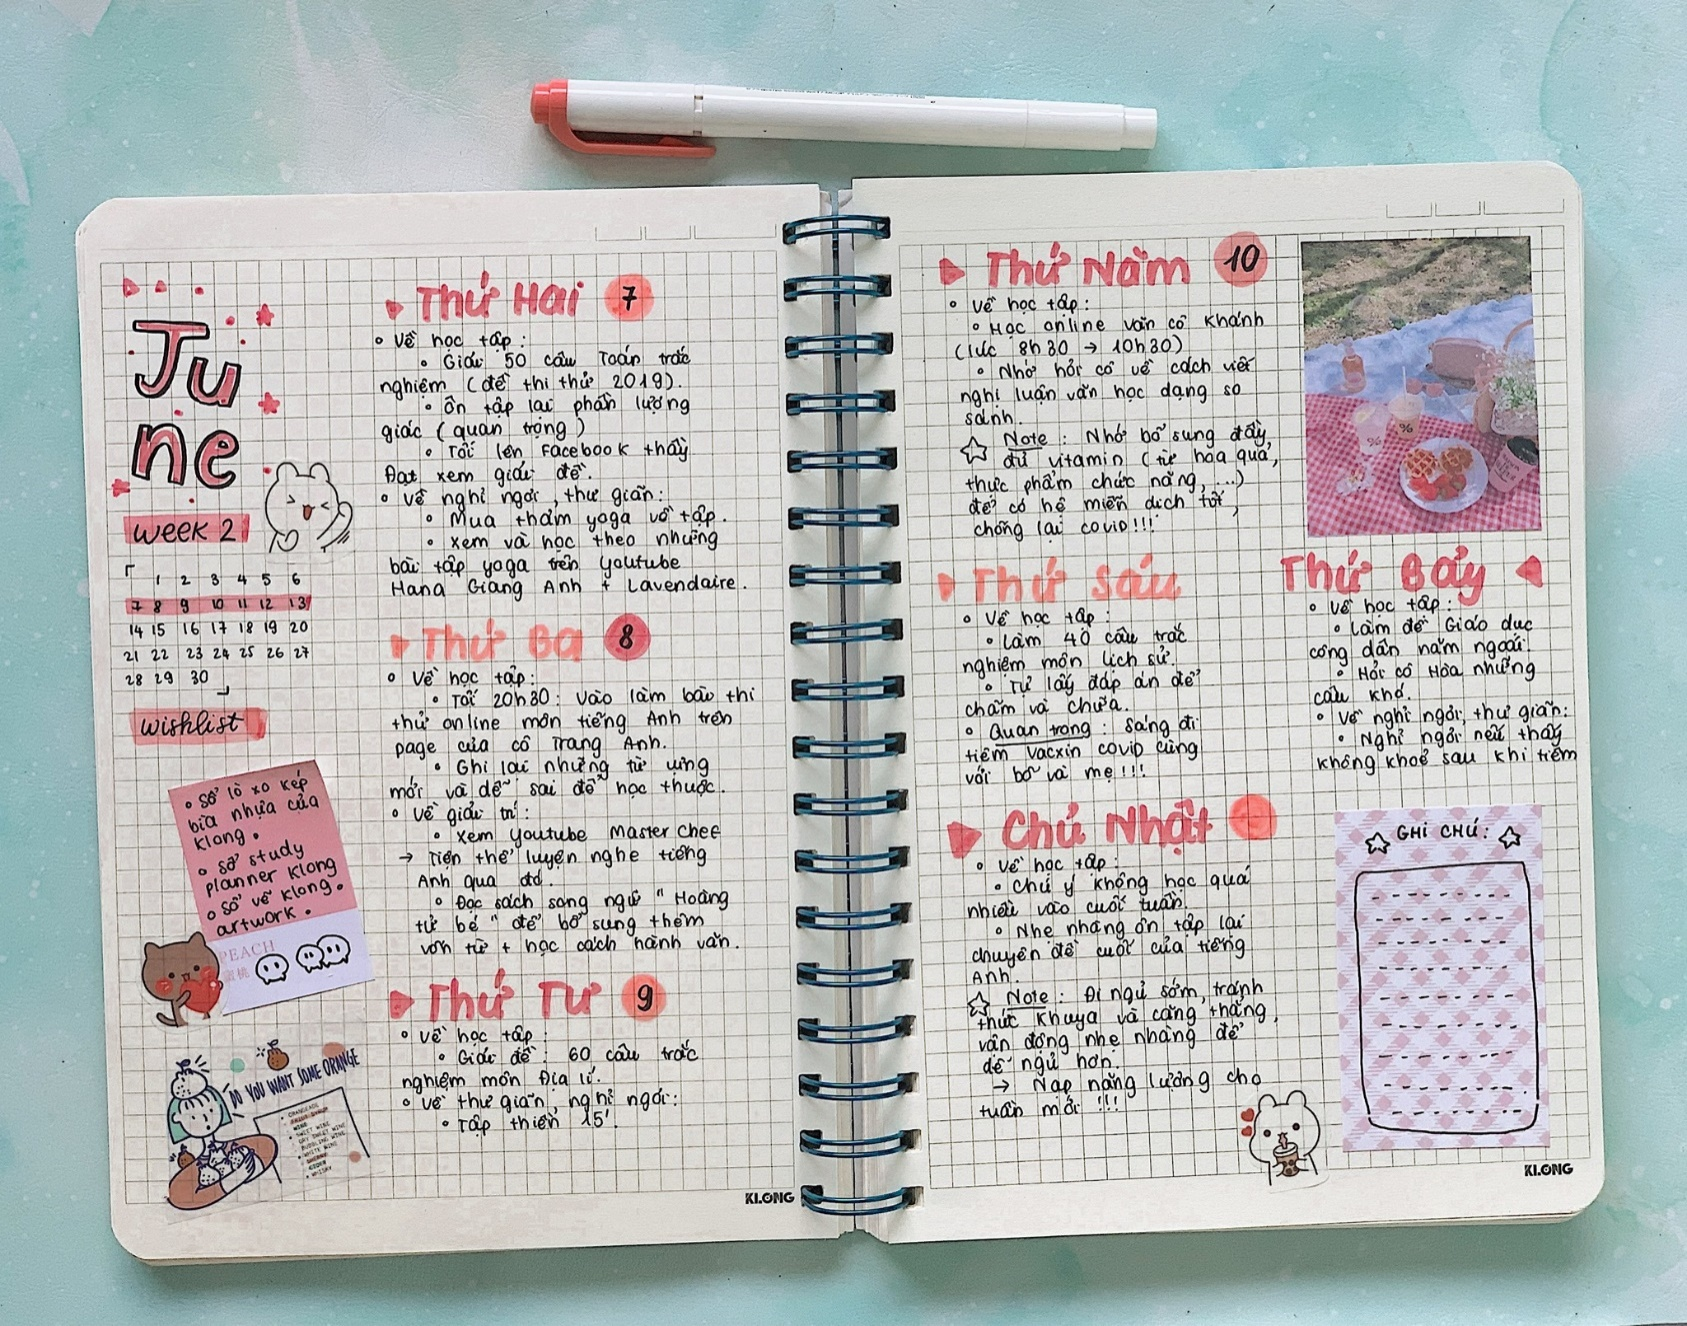 Ju
ne
week 2
1 2 3 4 5 6
7 8 9 10 11 12 13
14 15 16 17 18 19 20
21 22 23 24 25 26 27
28 29 30
wishlist
• Sổ lò xo kép
bìa nhựa của
Klong.
• Sổ study
planner Klong
• Sổ vẽ Klong.
artwork.
PEACH
蜜桃
DO YOU WANT SOME ORANGE
Thứ Hai 7
• Về học tập:
• Giải 50 câu Toán trắc
nghiệm (đề thi thử 2019).
• Ôn tập lại phần lượng
giác (quan trọng)
• Tối lên Facebook thầy
Đạt xem giải đề.
• Về nghỉ ngơi, thư giãn:
• Mua thảm yoga về tập.
• Xem và học theo những
bài tập yoga trên youtube
Hana Giang Anh + Lavendaire.
Thứ Ba 8
• Về học tập:
• Tối 20h30: Vào làm bài thi
thử online môn tiếng Anh trên
page của cô Trang Anh.
• Ghi lại những từ vựng
mới và dễ sai để học thuộc.
• Về giải trí:
• Xem youtube Master Chef
→ Tiện thể luyện nghe tiếng
Anh qua đó.
• Đọc sách song ngữ "Hoàng
tử bé" để bổ sung thêm
vốn từ + học cách hành văn.
Thứ Tư 9
• Về học tập:
• Giải đề: 60 câu trắc
nghiệm môn Địa lí.
• Về thư giãn, nghỉ ngơi:
• Tập thiền 15'.
KLONG
Thứ Năm 10
• Về học tập:
• Học online văn cô Khánh
(lúc 8h30 → 10h30)
• Nhớ hỏi cô về cách viết
nghị luận văn học dạng so
sánh.
☆ Note: Nhớ bổ sung đầy
đủ vitamin (từ hoa quả,
thực phẩm chức năng,...)
để có hệ miễn dịch tốt,
chống lại covid!!!
Thứ Sáu
• Về học tập:
• Làm 40 câu trắc
nghiệm môn lịch sử.
• Tự lấy đáp án để
chấm và chữa.
• Quan trọng: Sáng đi
tiêm vacxin covid cùng
với bố và mẹ!!!
Thứ Bảy
• Về học tập:
• Làm đề Giáo dục
công dân năm ngoái.
• Hỏi cô Hòa những
câu khó.
• Về nghỉ ngơi, thư giãn:
• Nghỉ ngơi nếu thấy
không khoẻ sau khi tiêm
Chủ Nhật
• Về học tập:
• Chú ý không học quá
nhiều vào cuối tuần.
• Nhẹ nhàng ôn tập lại
chuyên đề cuối của tiếng
Anh.
☆ Note: Đi ngủ sớm, tránh
thức khuya và căng thẳng,
vận động nhẹ nhàng để
dễ ngủ hơn.
→ Nạp năng lượng cho
tuần mới!!!
☆ GHI CHÚ: ☆
KLONG